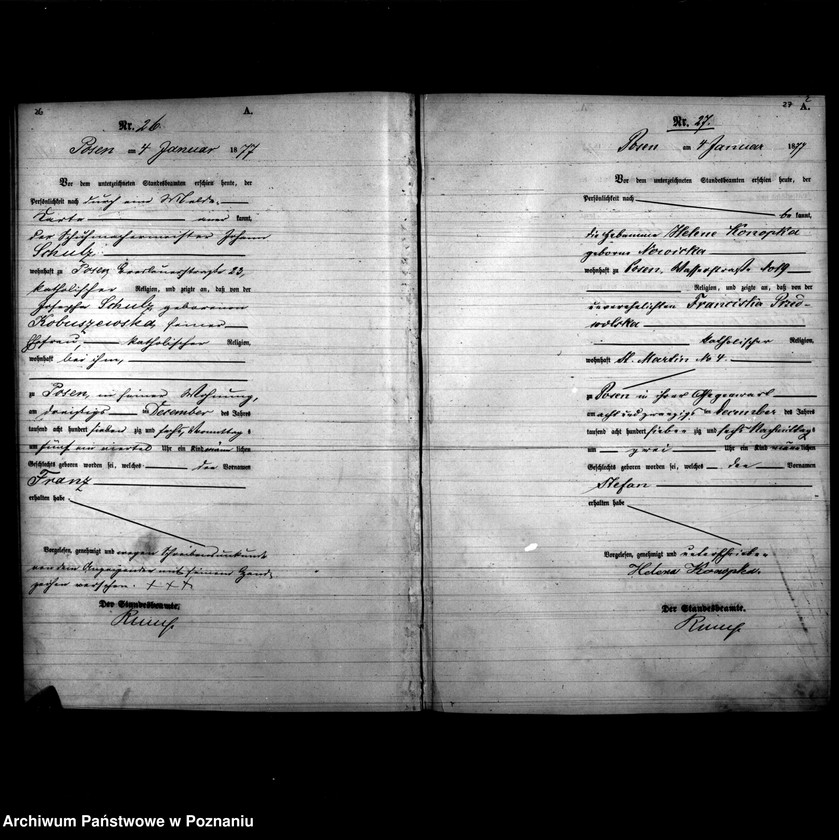 26.
A.
Nr. 26.
Posen am 4 Januar 1877
Vor dem unterzeichneten Standesbeamten erschien heute, der
Persönlichkeit nach durch eine Melde-
Karte anerkannt,
der Schuhmachermeister Johann
Schulz
wohnhaft zu Posen, 23,
katholischer Religion, und zeigte an, daß von der
Josepha Schulz geborenen
Kobuszewska, seiner
Ehefrau, katholischer Religion,
wohnhaft bei ihm,
zu Posen, in seiner Wohnung,
am dreißigsten Dezember des Jahres
tausend acht hundert siebenzig und sechs, Vormittags
um fünf ein viertel Uhr ein Kind männlichen
Geschlechts geboren worden sei, welches den Vornamen
Franz
erhalten habe
Vorgelesen, genehmigt und wegen Schreibensunkunde
von dem Anzeigenden mit seinem Hand-
zeichen versehen. + + +
Der Standesbeamte.
27
A.
Nr. 27.
Posen am 4 Januar 1877
Vor dem unterzeichneten Standesbeamten erschien heute, der
Persönlichkeit nach
bekannt,
die Hebamme Helene Konopka
geborne Nowicka
wohnhaft zu Posen, Wasserstraße No 19
Religion, und zeigte an, daß von der
unverehelichten Franciska
katholischer Religion,
wohnhaft St. Martin No 4.
zu Posen in ihrer Gegenwart
am acht und zwanzigsten Dezember des Jahres
tausend acht hundert siebenzig und sechs Nachmittags
um zwei Uhr ein Kind männlichen
Geschlechts geboren worden sei, welches den Vornamen
Stefan
erhalten habe
Vorgelesen, genehmigt und unterschrieben
Helena Konopka.
Der Standesbeamte.
Archiwum Państwowe w Poznaniu